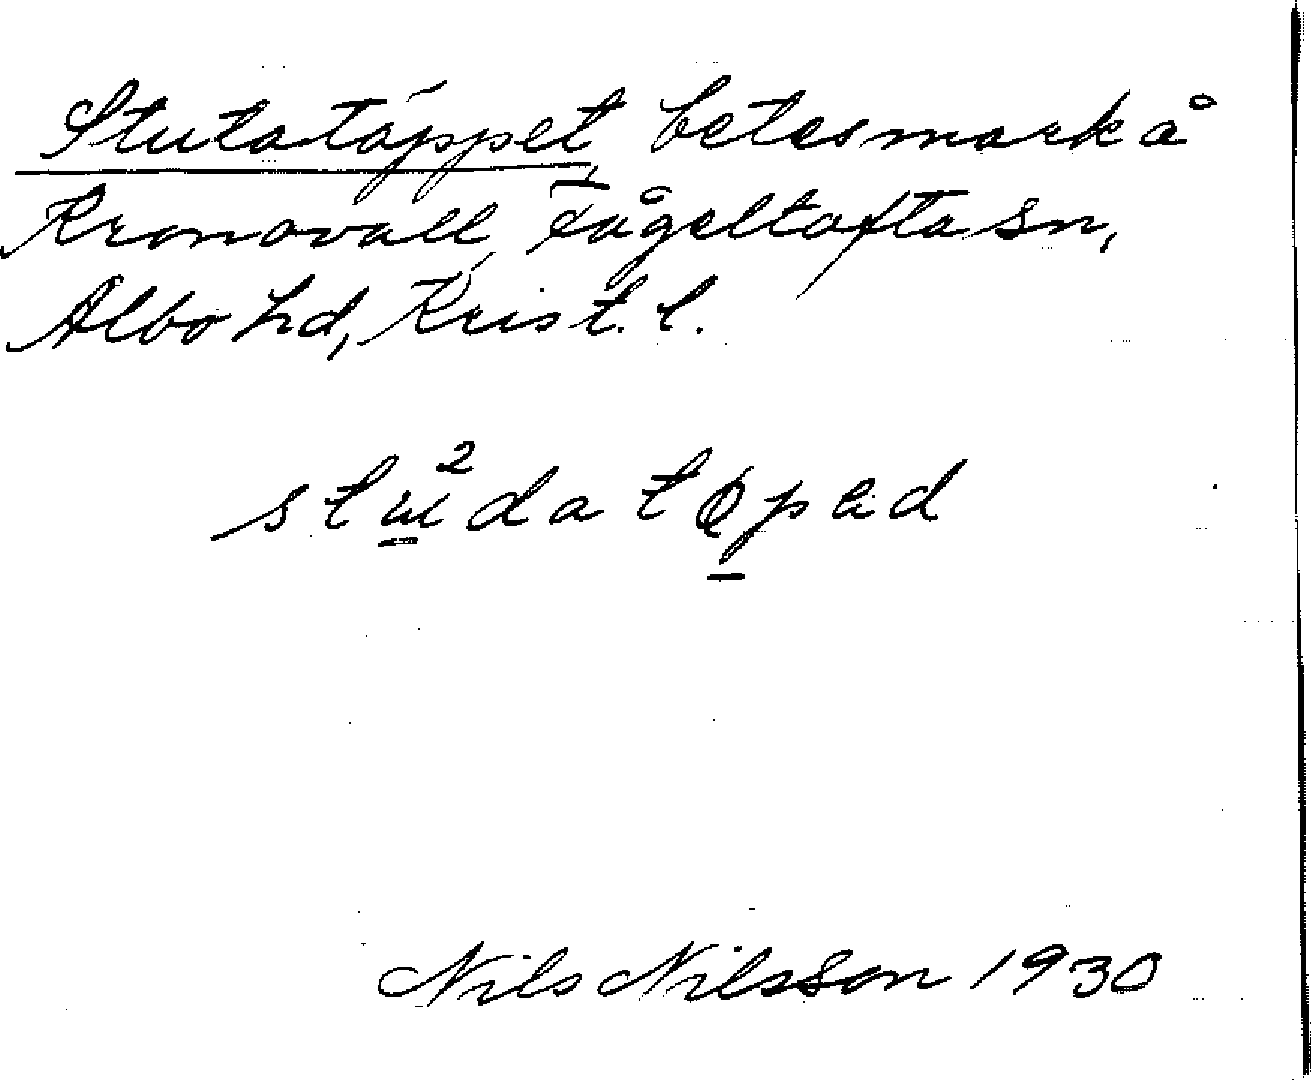 Stutatäppet, betesmark å
Kronovall, Fågeltofta sn,
Albo hd, Krist. l.
Nils Nilsson 1930